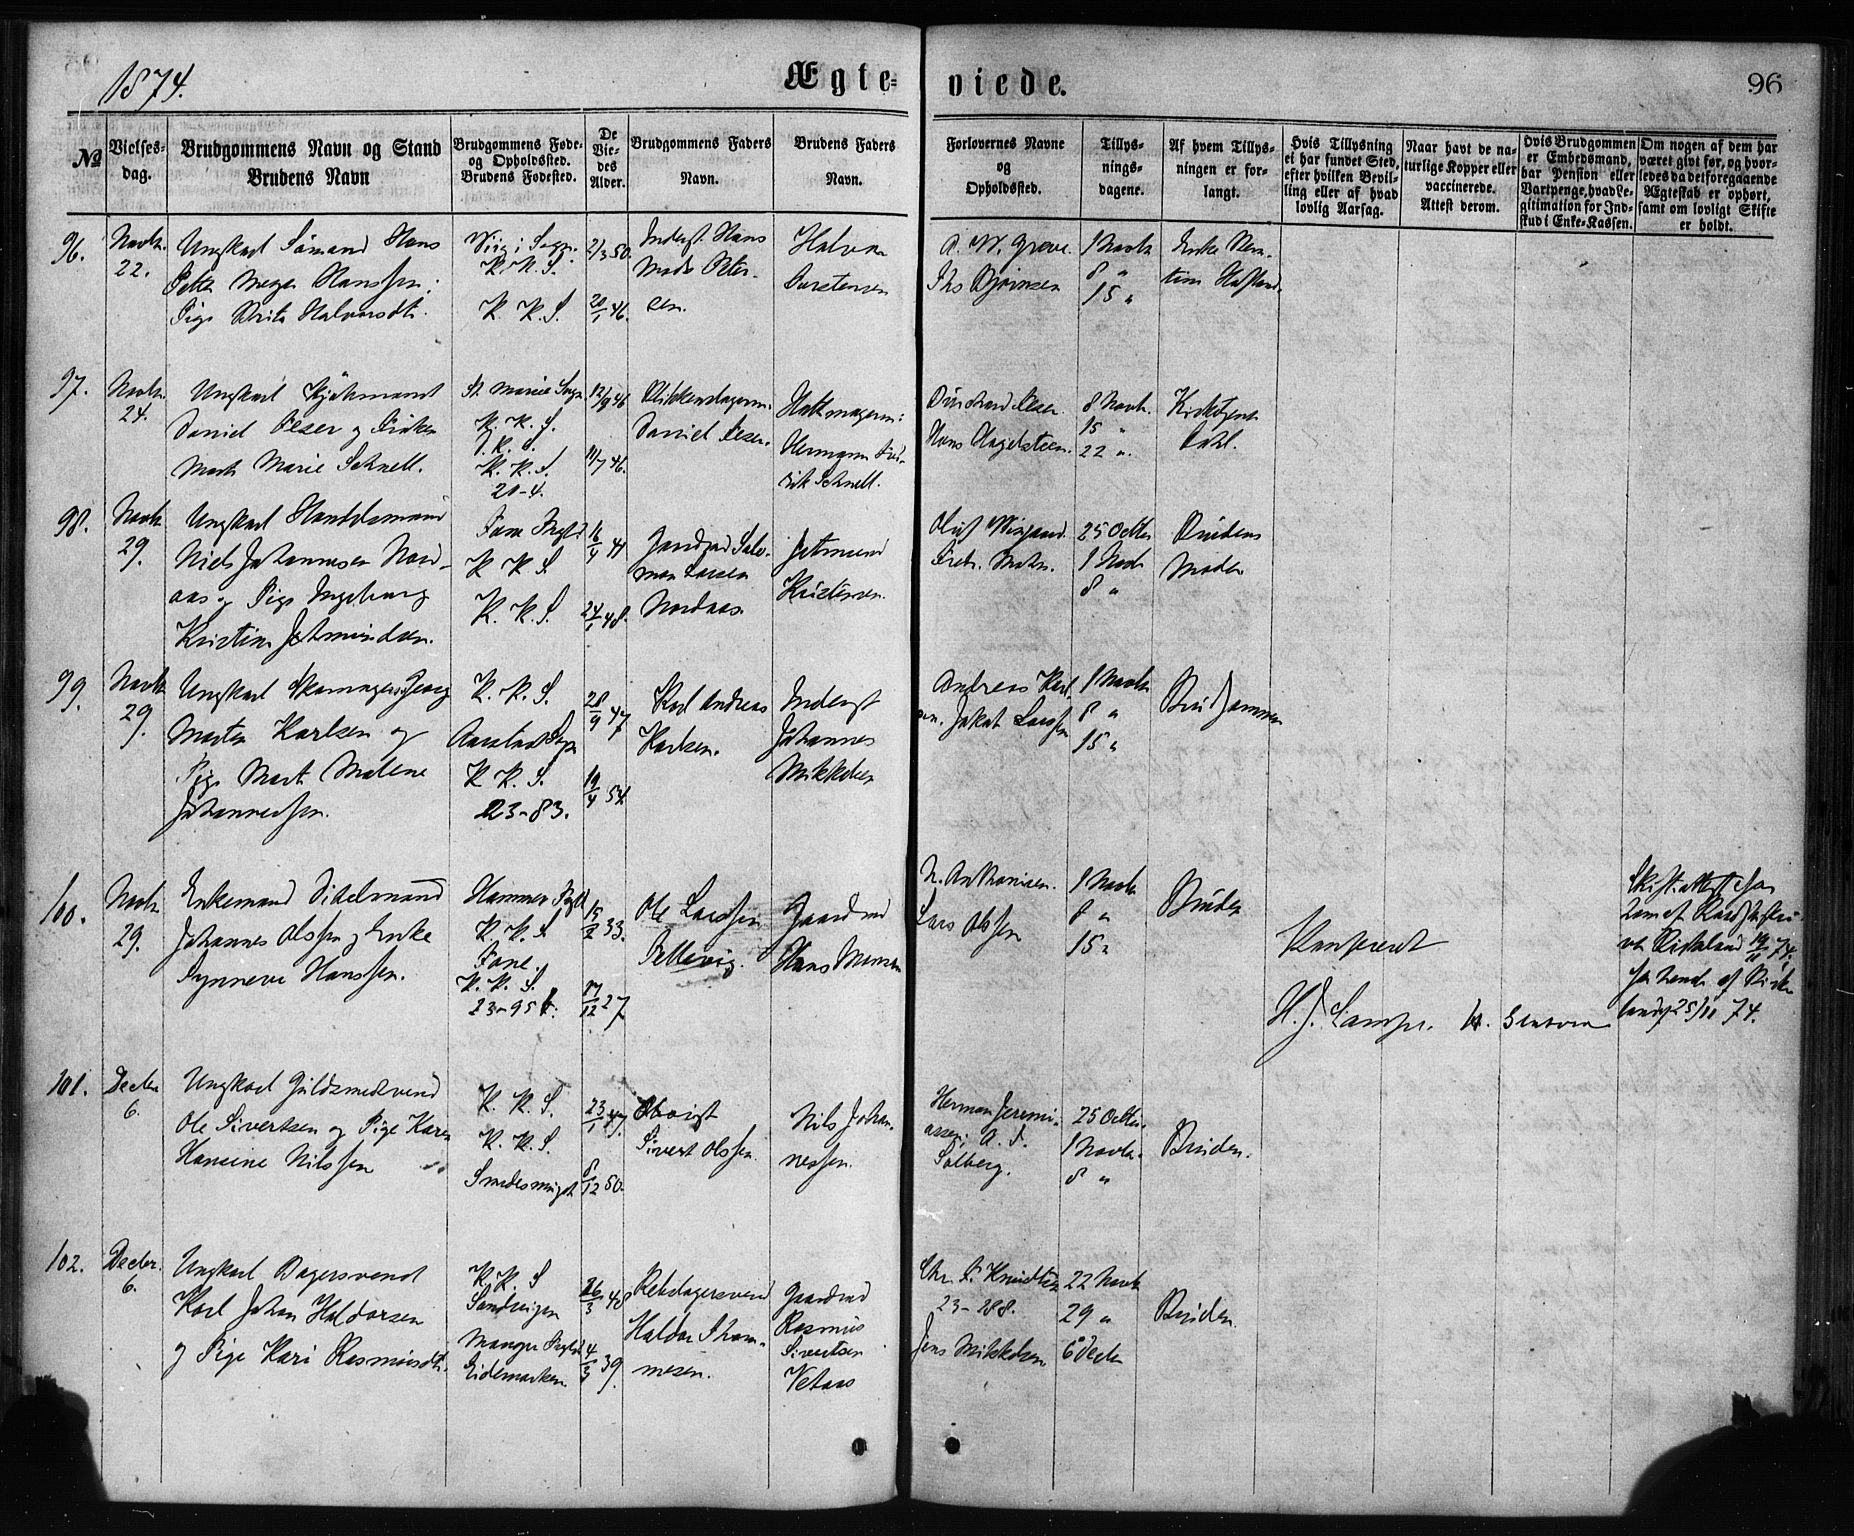 1874.
Ægte=
viede.
96
№
Vielses-
dag.
Brudgommens Navn og Stand
Brudens Navn
Brudgommens Føde-
og Opholdssted.
Brudens Fødested.
De
Vie-
des
Alder.
Brudgommens Faders
Navn.
Brudens Faders
Navn.
Forlovernes Navne
og
Opholdssted.
Tillys-
nings-
dagene.
Af hvem Tillys-
ningen er for-
langt.
Hvis Tillysning
ei har fundet Sted,
efter hvilken Bevil-
ling eller af hvad
lovlig Aarsag.
Naar havt de na-
turlige Kopper eller
vaccinerede.
Attest derom.
Hvis Brudgommen
er Embedsmand,
har Pension eller
Vartpenge, hvad Le-
gitimation for Ind-
skud i Enke-Kassen.
Om nogen af dem har
været givt før, og hvor-
ledes da det foregaaende
Ægteskab er ophørt,
samt om lovligt Skifte
er holdt.
96.
Novbr.
22.
Ungkarl Sømand Hans
Petter Meyer Hanssen;
Pige Brita Halvorsdtr.
K. K. S.
K. K. S.
2/3 50.
20/1 46.
Inderst Hans
Mads Peter-
sen.
Halvor
Torstensen
A. W. Greve.
Jhs Bjørnsen
1 Novbr
8 "
15 "
Enke
97.
Novbr.
24.
Ungkarl
Daniel Peser og Frøken
Marie Schnell.
St. Marie Sogn.
K. K. S.
K. K. S.
20-4.
12/9 46
11/7 46.
Daniel Peser.
Hattemagerm:
Hermann Fred-
rik Schnell.
Hans Hagelsteen.
8 Novbr.
15 "
22 "
Kirketjener
Dahl.
98.
Novbr.
29.
Ungkarl Handelsmand
Niels Johannesen Nord-
aas og Pige Ingeborg
Kristine Jetmundsen.
Fane Prgld
K. K. S.
K. K. S.
16/4 41
24/1 48.
Gaardmd Salo-
mon Larsen
Nordaas
Jetmund
Kristensen.
Oluf Wiigaard
Fredr. Mohn.
25 Octbr
1 Novbr
8 "
Brudens
Moder
99.
Novbr
29.
Ungkarl Skomagersv. Georg
Martin Karlsen og
Pige Mart. Malene
Johannessen.
K. K. S.
Aarstad Sogn
K. K. S.
23-83.
28/9 47
19/4 54.
Karl Andreas
Karlsen.
Inderst
Johannes
Mikkelsen
Andreas Karl-
sen. Jakob Larssen
1 Novbr
8 "
15 "
Brudgommen
100.
Novbr
29.
Enkemand
Johannes Olssen og Enke
Synneve Hanssen.
Hammer Prgld
K. K. S.
Fane.
K. K. S.
23-95 b.
15/2 33.
17/12 27
Ole Larssen
Gaardmd
Hans Monsen
N. Anthonisen.
Lars Olssen
1 Novbr
8 "
15 "
Bruden
Konfereret
H. J. Lampe.
101.
Decbr
6.
Ungkarl Guldsmedsvend
Ole Sivertsen og Pige Karen
Hansine Nilssen
K. K. S.
K. K. S.
Smedesmuget
23/1 47.
8/12 50.
Sivert Olssen.
Nils Johan-
nessen.
Herman Jeremi-
assen; A. F.
Solberg.
25 Octbr.
1 Novbr.
8 "
Bruden.
102.
Decbr.
6.
Ungkarl Bagersvend
Karl Johan Haldorsen
og Pige Kari Rasmusdtr.
K. K. S
Sandvigen
Manger Prgld
Eidemarken
26/3 48
4/3 39.
Rebslagersvend
Haldor Thom-
mesen.
Gaardmd
Rasmus
Sivertsen
Vetaas
Chr. F. Knudtsen
23-288.
Jens Mikkelsen
22 Novbr
29 "
6 Decbr
Bruden.